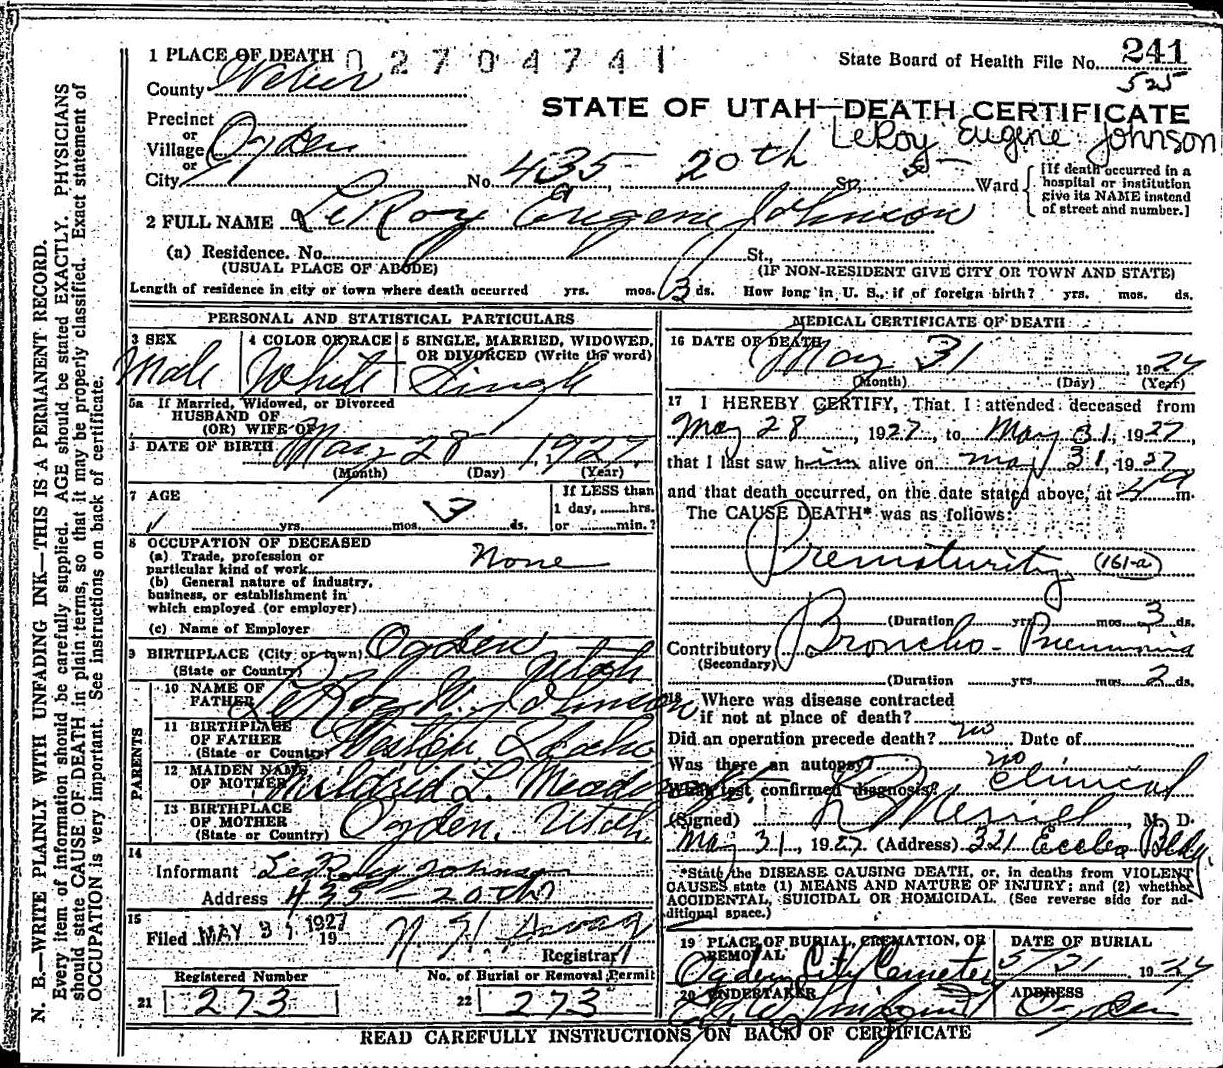 1 PLACE OF DEATH 02704741
State Board of Health File No. 241
525
County Weber
STATE OF UTAH—DEATH CERTIFICATE
Precinct
or
Village Ogden
or
City
LeRoy Eugene Johnson
No. 435 20th St., 5 Ward
[If death occurred in a
hospital or institution
give its NAME instead
of street and number.]
2 FULL NAME LeRoy Eugene Johnson
(a) Residence. No. St.,
(USUAL PLACE OF ABODE) (IF NON-RESIDENT GIVE CITY OR TOWN AND STATE)
Length of residence in city or town where death occurred yrs. mos. 3 ds. How long in U. S., if of foreign birth? yrs. mos. ds.
PERSONAL AND STATISTICAL PARTICULARS
3 SEX Male
4 COLOR OR RACE White
5 SINGLE, MARRIED, WIDOWED,
OR DIVORCED (Write the word)
Single
5a If Married, Widowed, or Divorced
HUSBAND OF
(OR) WIFE OF
DATE OF BIRTH May 28 1927
(Month) (Day) (Year)
7 AGE yrs. mos. 3 ds.
If LESS than
1 day, hrs.
or min.?
8 OCCUPATION OF DECEASED
(a) Trade, profession or
particular kind of work None
(b) General nature of industry,
business, or establishment in
which employed (or employer)
(c) Name of Employer
9 BIRTHPLACE (City or town) Ogden
(State or Country) Utah
PARENTS
10 NAME OF
FATHER LeRoy W. Johnson
11 BIRTHPLACE
OF FATHER
(State or Country) Weston Idaho
12 MAIDEN NAME
OF MOTHER Mildred L.
13 BIRTHPLACE
OF MOTHER
(State or Country) Ogden, Utah
14
Informant LeRoy Johnson
Address 435 - 20th
15
Filed MAY 31 1927 19
Registrar
Registered Number
21 273
No. of Burial or Removal Permit
22 273
MEDICAL CERTIFICATE OF DEATH
16 DATE OF DEATH May 31, 1927
(Month) (Day) (Year)
17 I HEREBY CERTIFY, That I attended deceased from
May 28, 1927, to May 31, 1927,
that I last saw him alive on May 31, 1927
and that death occurred, on the date stated above, at m.
The CAUSE DEATH* was as follows:
Prematurity (161-a)
(Duration yrs. mos. 3 ds.
Contributory Broncho-Pneumonia
(Secondary)
(Duration yrs. mos. 2 ds.
18 Where was disease contracted
if not at place of death?
Did an operation precede death? no Date of
Was there an autopsy? no
What test confirmed diagnosis? Clinical
(Signed) Merrill, M. D.
May 31, 1927 (Address) 321 Eccles Bldg.
*State the DISEASE CAUSING DEATH, or, in deaths from VIOLENT
CAUSES state (1) MEANS AND NATURE OF INJURY; and (2) whether
ACCIDENTAL, SUICIDAL OR HOMICIDAL. (See reverse side for ad-
ditional space.)
19 PLACE OF BURIAL, CREMATION, OR
REMOVAL
Ogden City Cemetery
DATE OF BURIAL
5/31, 1927
20 UNDERTAKER
ADDRESS
Ogden
READ CAREFULLY INSTRUCTIONS ON BACK OF CERTIFICATE
N. B.—WRITE PLAINLY WITH UNFADING INK—THIS IS A PERMANENT RECORD.
Every item of information should be carefully supplied. AGE should be stated EXACTLY. PHYSICIANS
should state CAUSE OF DEATH in plain terms, so that it may be properly classified. Exact statement of
OCCUPATION is very important. See instructions on back of certificate.